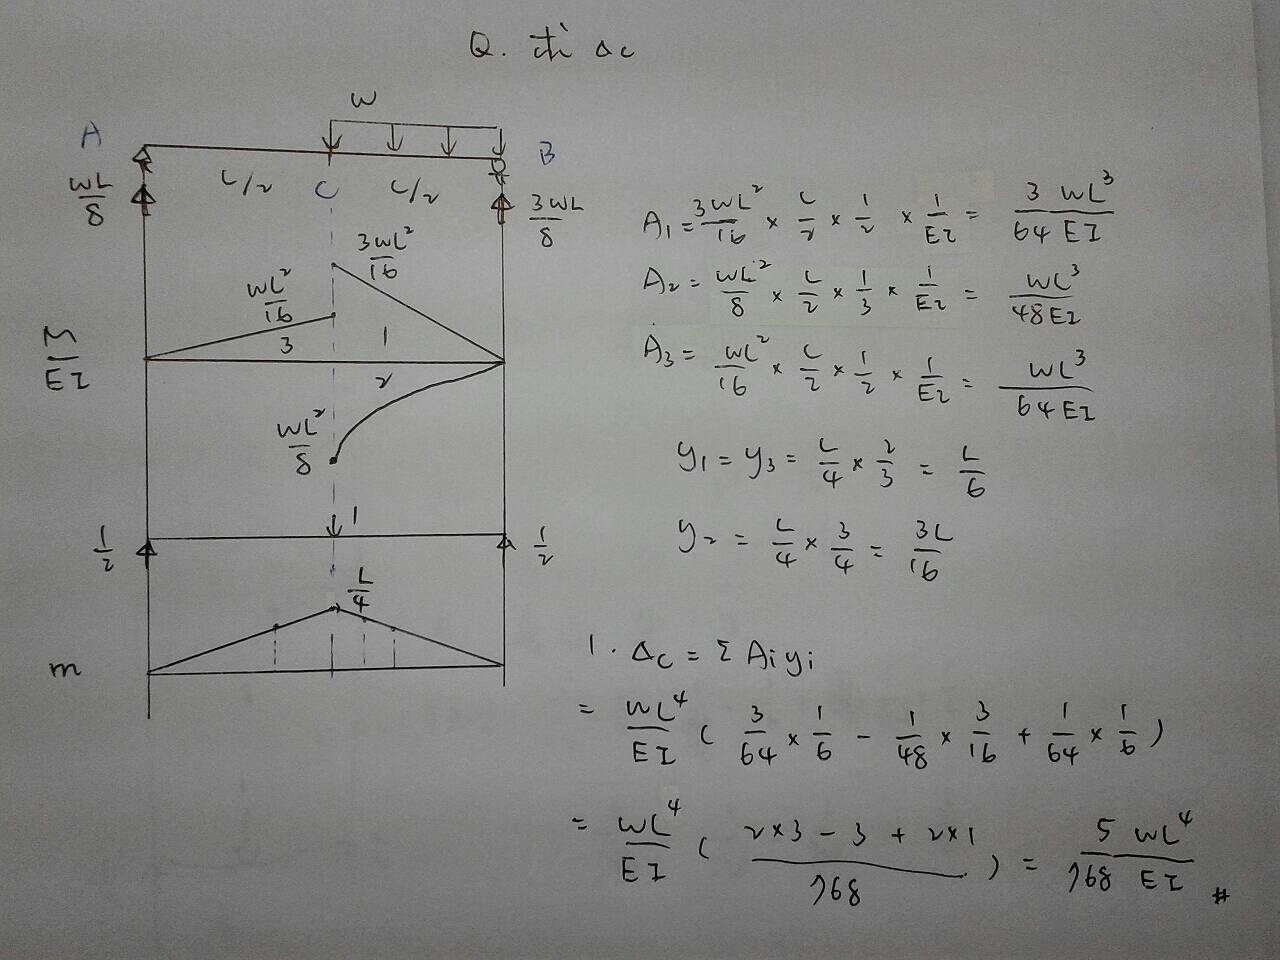 Q. 求 Δc
w
A
B
C
L/2
L/2
wL/8
3wL/8
3wL²/16
wL²/16
3
1
2
M/EI
wL²/8
1
1/2
1/2
L/4
m
A₁ = 3wL²/16 × L/2 × 1/2 × 1/EI = 3wL³/64EI
A₂ = wL²/8 × L/2 × 1/3 × 1/EI = wL³/48EI
A₃ = wL²/16 × L/2 × 1/2 × 1/EI = wL³/64EI
y₁ = y₃ = L/4 × 2/3 = L/6
y₂ = L/4 × 3/4 = 3L/16
1. Δc = Σ Aiyi
= wL⁴/EI ( 3/64 × 1/6 - 1/48 × 3/16 + 1/64 × 1/6 )
= wL⁴/EI ( 2×3 - 3 + 2×1 / 768 ) = 5wL⁴/768EI #